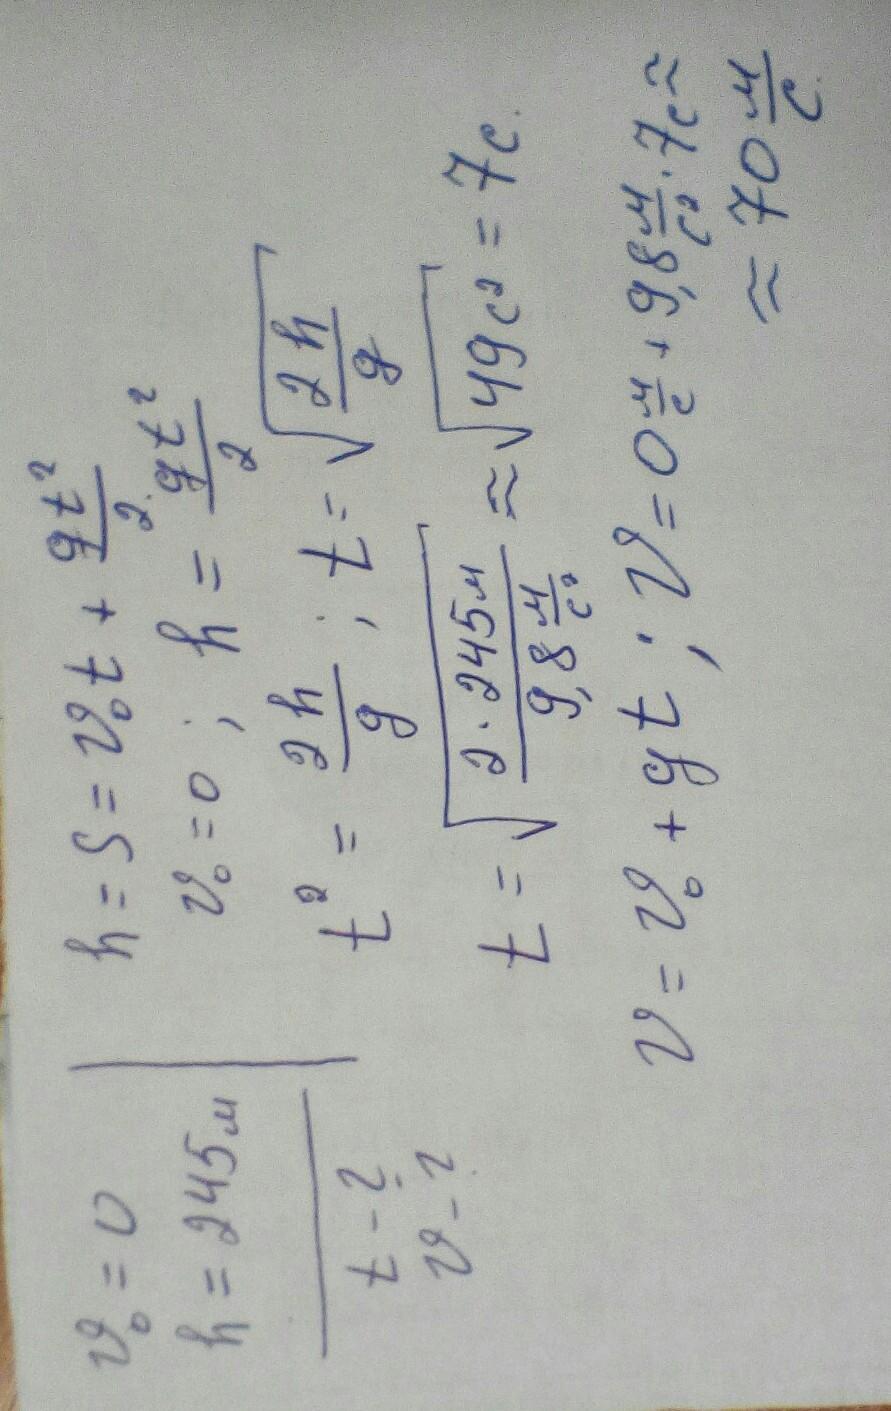 v₀ = 0
h = 245 м
t - ?
v - ?
h = S = v₀t + gt²/2
v₀ = 0 ; h = gt²/2
t² = 2h/g ; t = √(2h/g)
t = √(2·245м / 9,8 м/с²) ≈ √(49c²) = 7c.
v = v₀ + gt ; v = 0 м/с + 9,8 м/с² · 7c ≈
≈ 70 м/с.